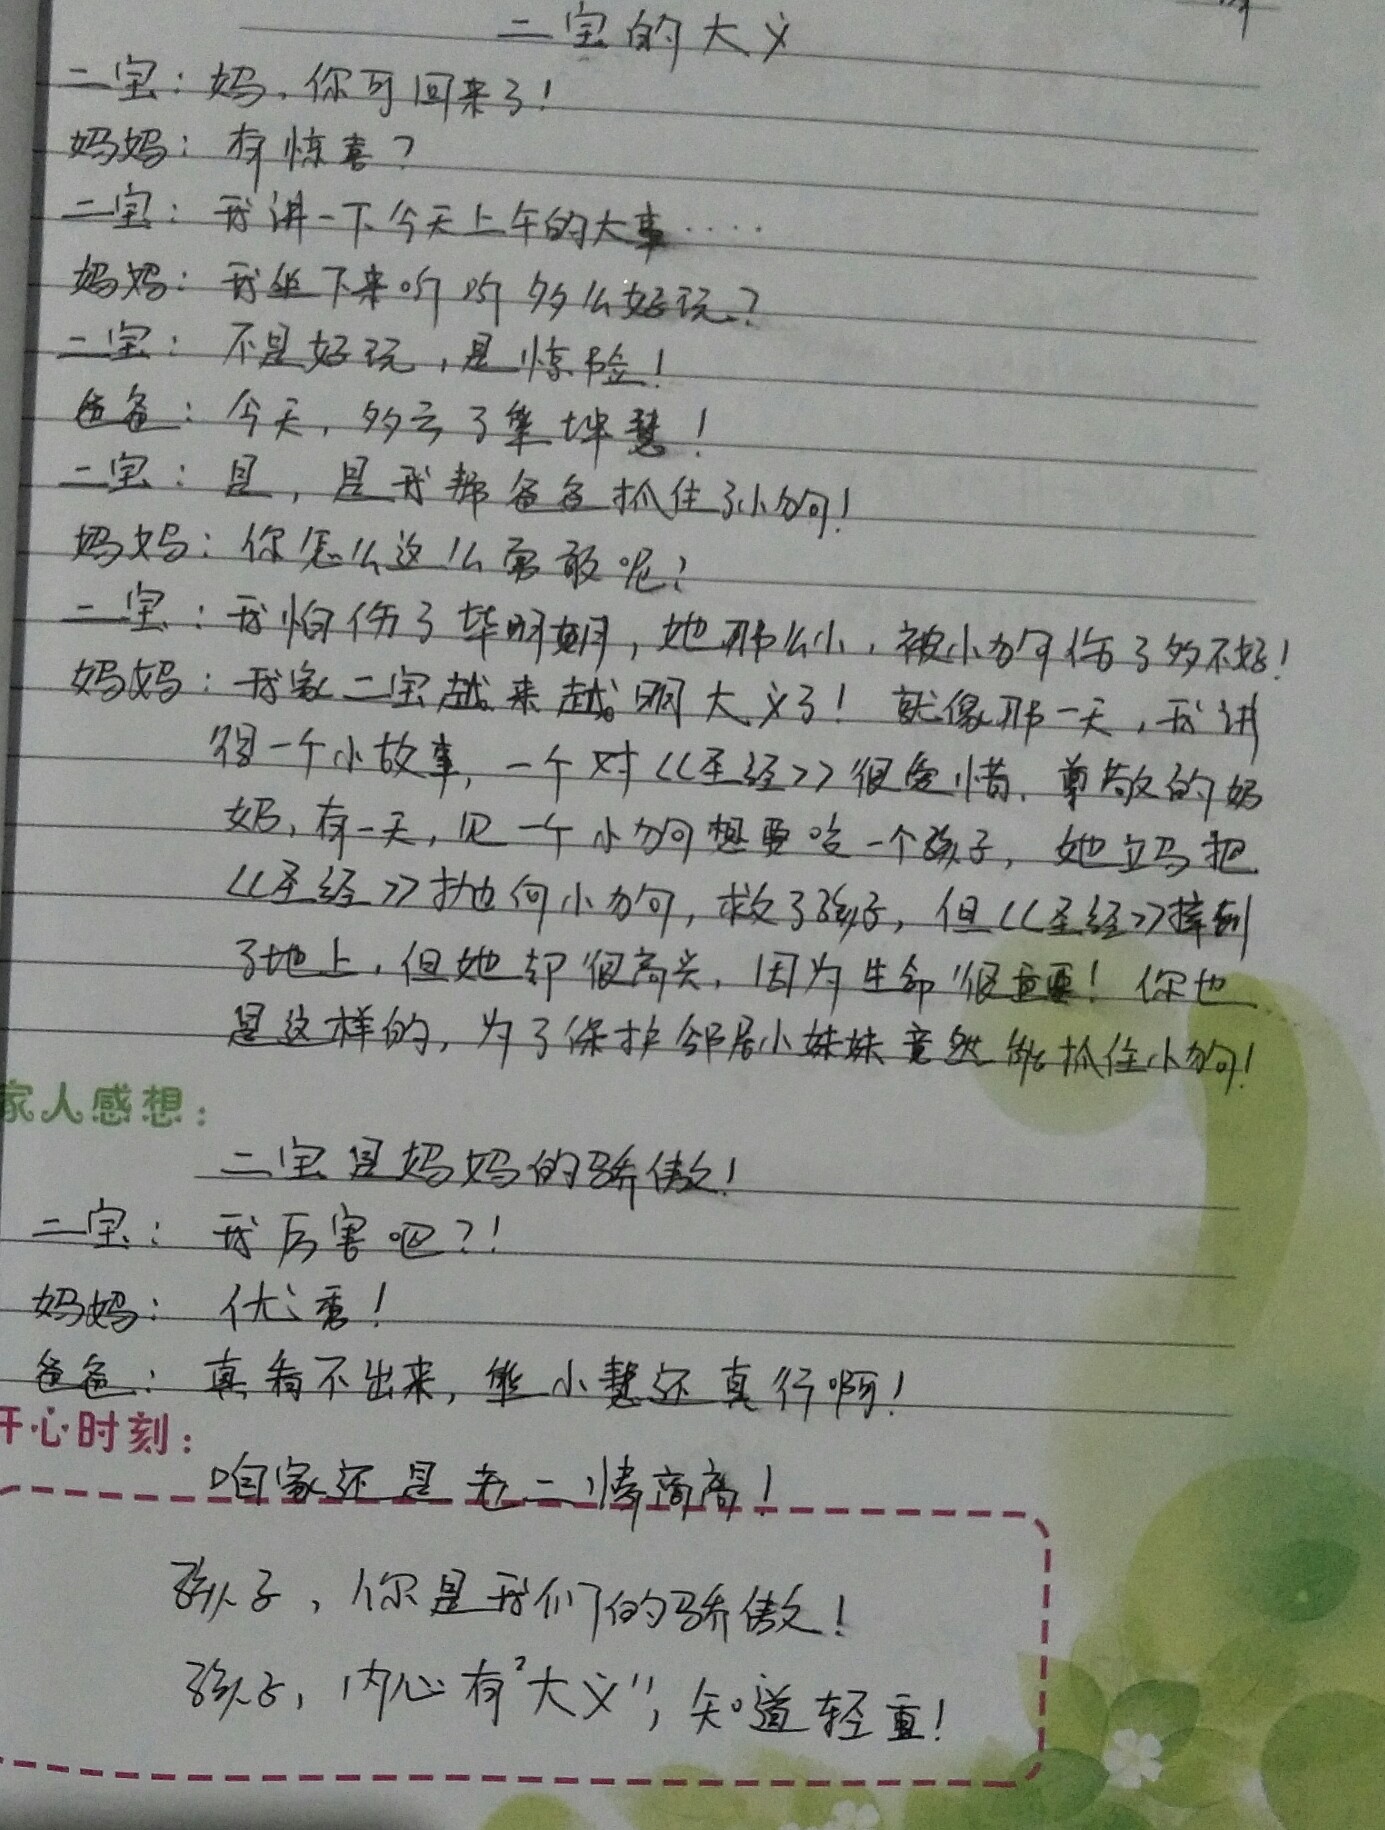 二宝的大义
二宝：妈，你可回来了！
妈妈：有惊喜？
二宝：我讲一下今天上午的大事……
妈妈：我坐下来听听多么好玩？
二宝：不是好玩，是惊险！
爸爸：今天，多亏了熊坤慧！
二宝：是，是我帮爸爸抓住了小狗！
妈妈：你怎么这么勇敢呢？
二宝：我怕伤了毕明，她那么小，被小狗伤了多不好！
妈妈：我家二宝越来越明大义了！就像那一天，我讲
得一个小故事，一个对《圣经》很爱惜、尊敬的奶
奶，有一天，见一个小狗想要咬一个孩子，她立马把
《圣经》抛向小狗，救了孩子，但《圣经》摔到
了地上，但她却很高兴，因为生命很重要！你也
是这样的，为了保护邻居小妹妹竟然能抓住小狗！
家人感想：
二宝是妈妈的骄傲！
二宝：我厉害吧？！
妈妈：优秀！
爸爸：真看不出来，熊小慧还真行啊！
开心时刻：
咱家还是老二情商高！
孩子，你是我们的骄傲！
孩子，内心有“大义”，知道轻重！